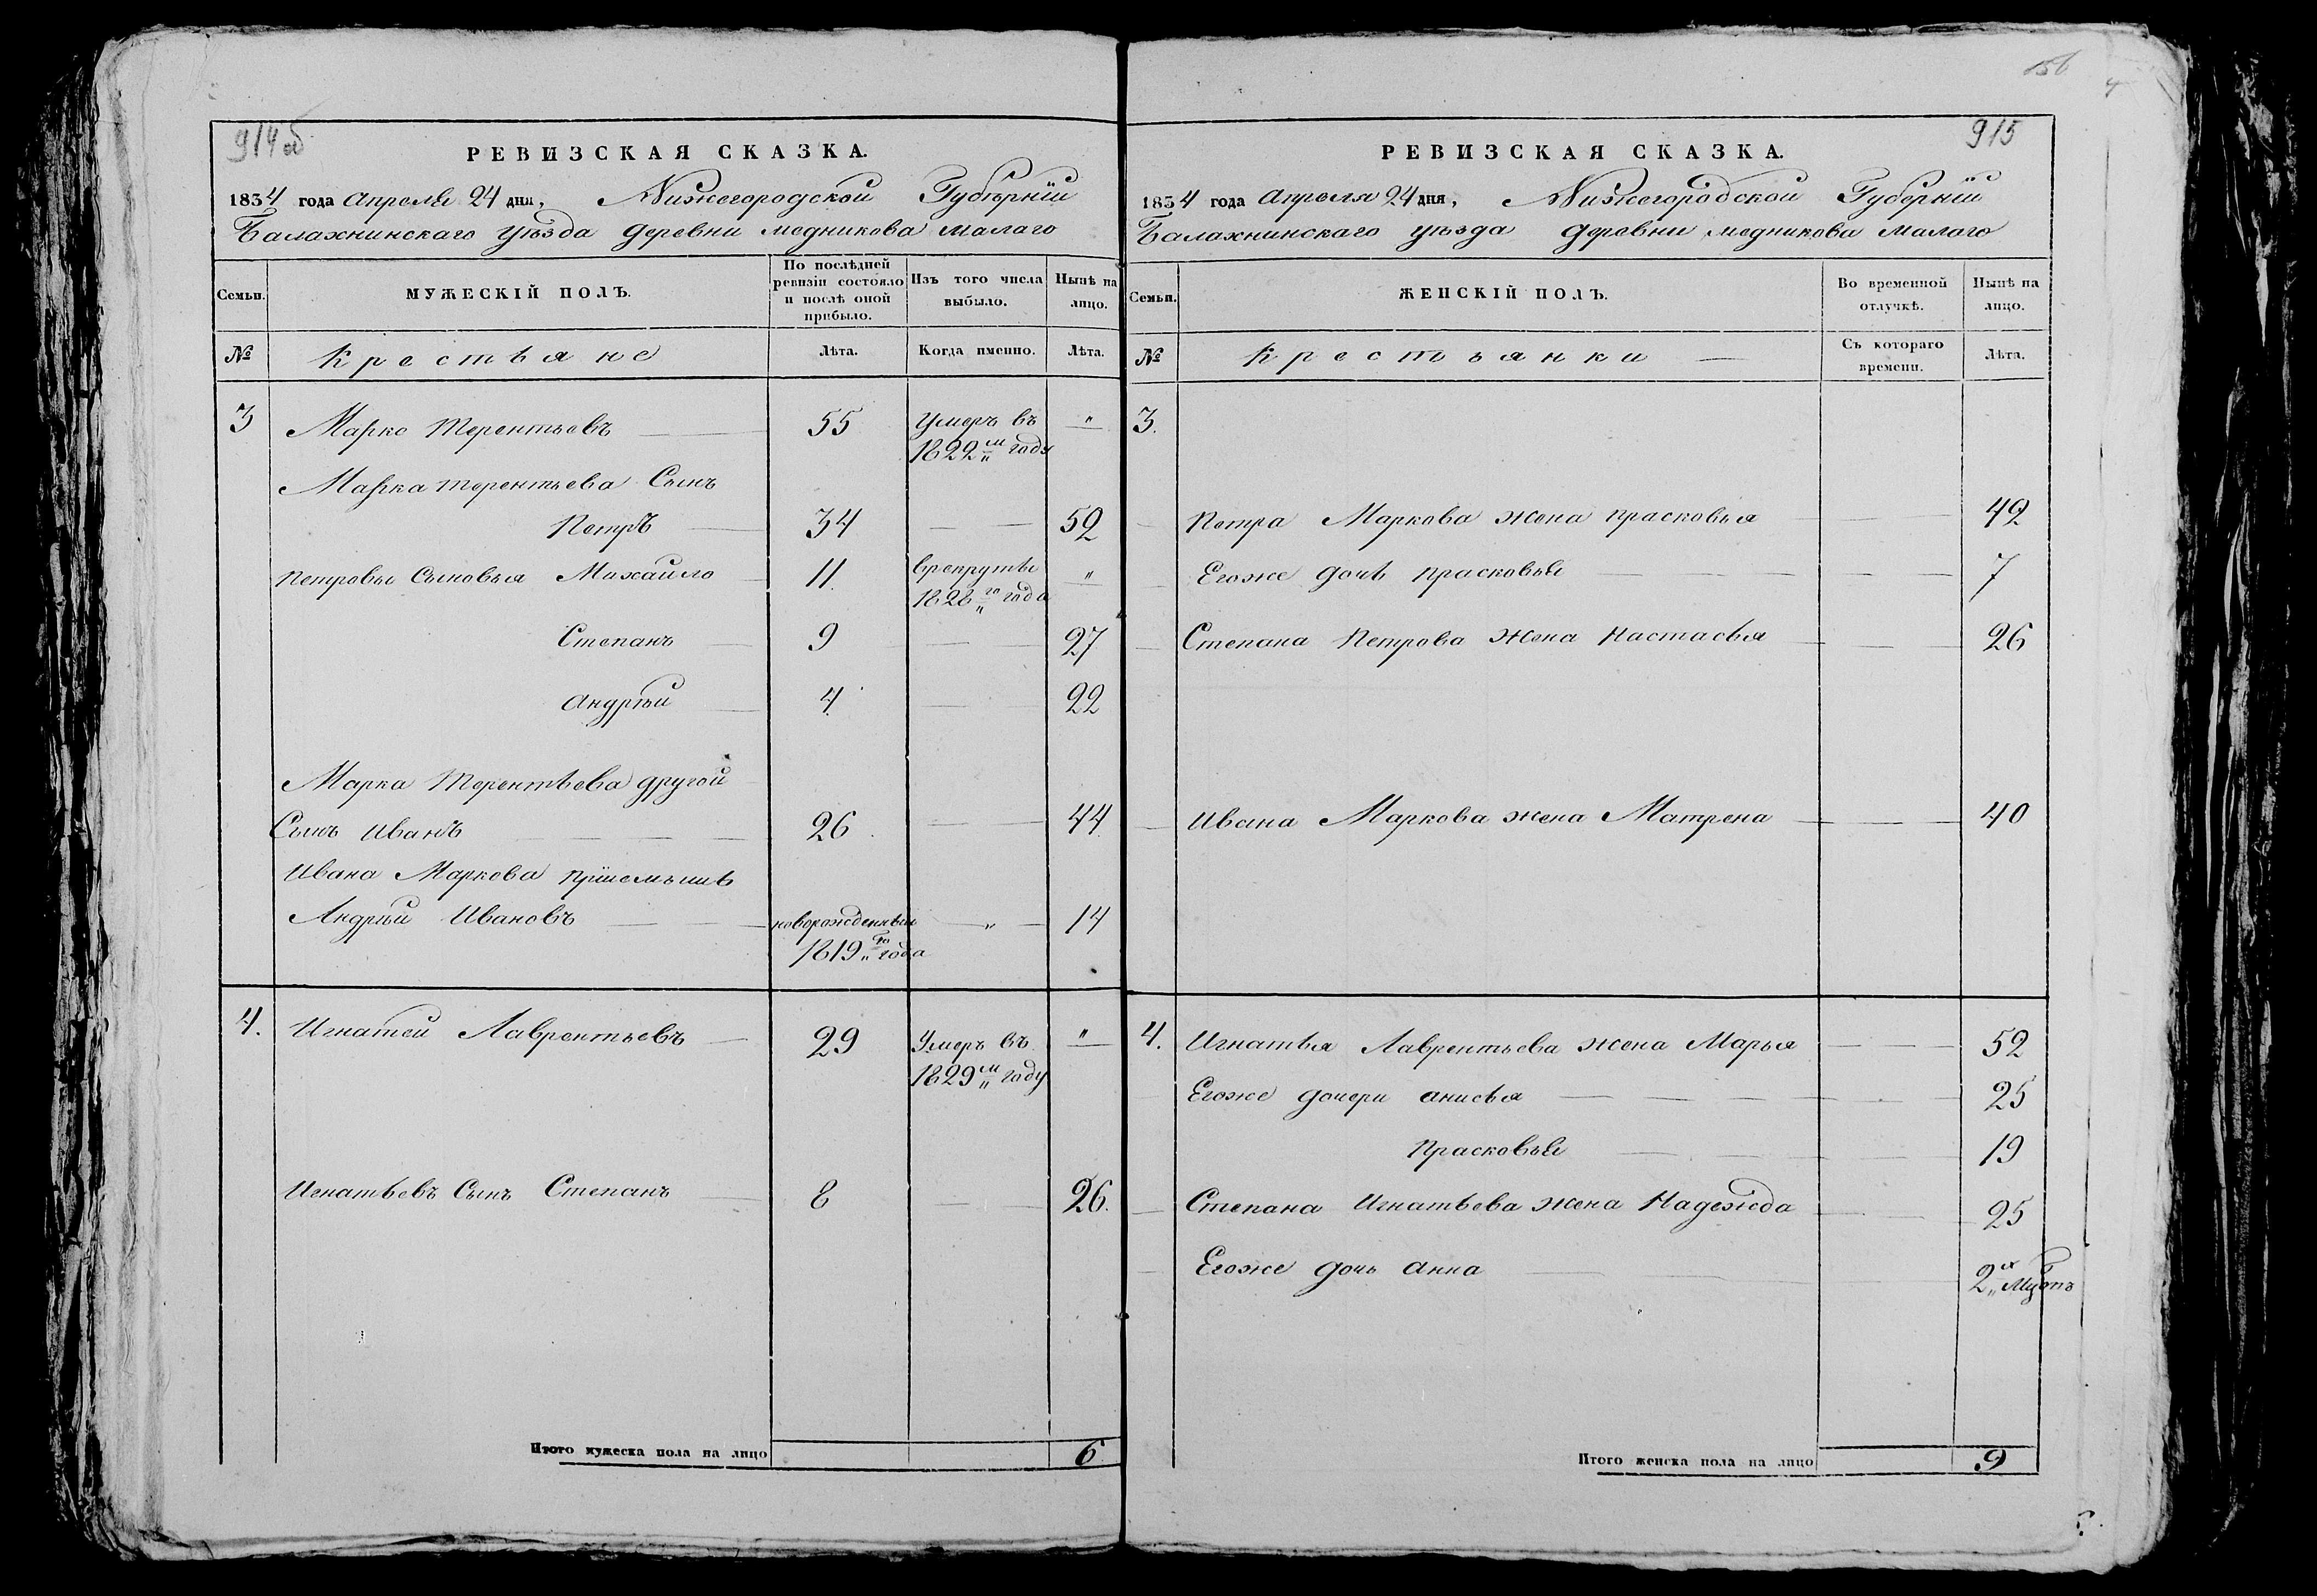 914об
РЕВИЗСКАЯ СКАЗКА.
1834 года Апреля 24 дня, Нижегородской Губѣрніи
Балахнинскаго уѣзда деревни медникова малаго
Семьи.
МУЖЕСКІЙ ПОЛЪ.
По послѣдней ревизіи состояло и послѣ оной прибыло.
Изъ того числа выбыло.
Нынѣ на лицо.
№
Крестьяне
Лѣта.
Когда именно.
Лѣта.
3 Марко Терентьевъ 55 Умеръ въ "
1822м году
Марка терентьева Сынъ
Петръ 34 52
Петровы Сыновья Михайло 11. врекруты "
1828го года
Степанъ 9 27
Андрѣй 4. 22
Марка Терентьева другой
Сынъ Иванъ 26 44
Ивана Маркова пріемышъ
Андрѣй Ивановъ новорожденный " 14
1819го года
4. Игнатей Лаврентьевъ 29 Умеръ въ "
1829м году
Игнатьевъ Сынъ Степанъ 8 26.
Итого мужеска пола на лицо 6
156
4
915
РЕВИЗСКАЯ СКАЗКА.
1834 года Апреля 24 дня, Нижегородской Губерніи
Балахнинскаго уѣзда деревни медникова малаго
Семьи.
ЖЕНСКІЙ ПОЛЪ.
Во временной отлучкѣ.
Нынѣ на лицо.
№
Крестьянки
Съ котораго времени.
Лѣта.
3.
Петра Маркова жена прасковья 42
Егоже дочь прасковья 7
Степана Петрова жена Настасья 26
Ивана Маркова жена Матрена 40
4. Игнатья Лаврентьева жена Марья 52
Егоже дочери анисья 25
Прасковья 19
Степана Игнатьева жена Надежда 25
Егоже дочь анна 2х
Итого женска пола на лицо 9